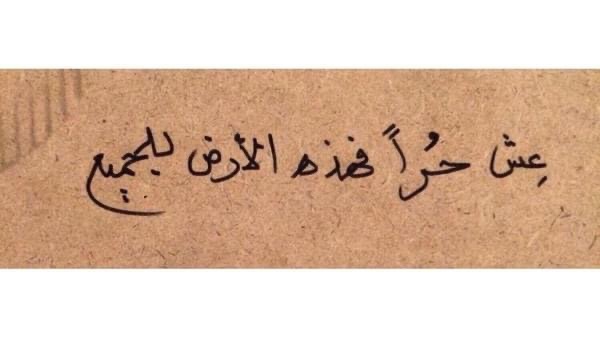 عِش حُراً فهذه الأرض للجميع